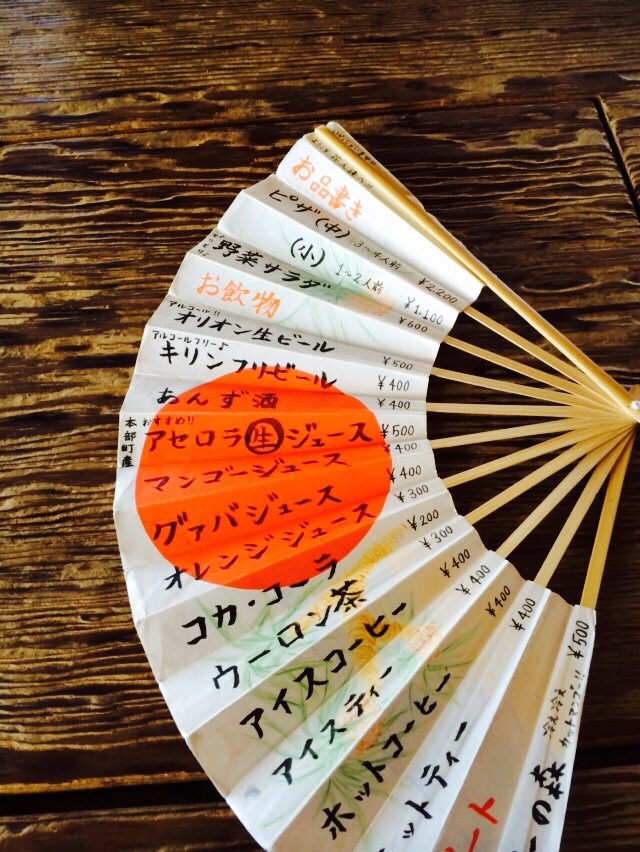 お品書き
ピザ(中) 3〜4人前 ¥2,200
(小) 1〜2人前 ¥1,100
野菜サラダ ¥600
お飲物
アルコール!!
オリオン生ビール ¥500
アルコールフリー♪
キリンフリービール ¥400
あんず酒 ¥400
本部町産
おすすめ!!
アセロラ生ジュース ¥500
マンゴージュース ¥400
グァバジュース ¥400
オレンジジュース ¥300
コカ・コーラ ¥200
ウーロン茶 ¥300
アイスコーヒー ¥400
アイスティー ¥400
ホットコーヒー ¥400
ットティー ¥400
ート
冷え冷え
カットマンゴー!!
ーの森 ¥500